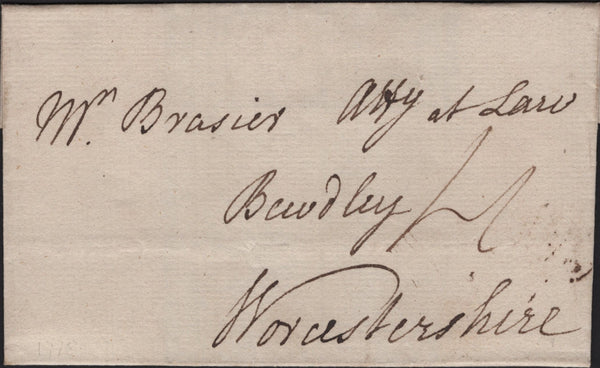 Mr. Brasier Atty at Law
Bewdley 4
Worcestershire